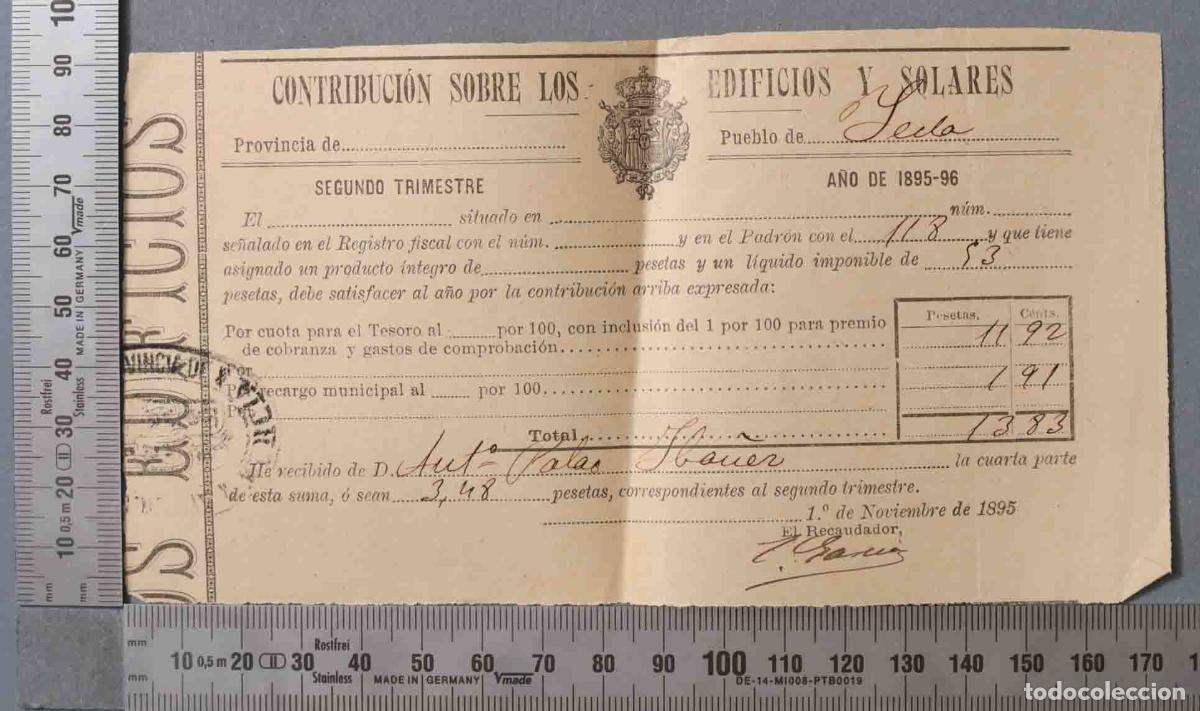 CONTRIBUCIÓN SOBRE LOS EDIFICIOS Y SOLARES
Provincia de
Pueblo de Yecla
SEGUNDO TRIMESTRE
AÑO DE 1895-96
El situado en núm.
señalado en el Registro fiscal con el núm. y en el Padrón con el 118 y que tiene
asignado un producto íntegro de pesetas y un líquido imponible de 53
pesetas, debe satisfacer al año por la contribución arriba expresada:
Pesetas. Cénts.
Por cuota para el Tesoro al por 100, con inclusión del 1 por 100 para premio
de cobranza y gastos de comprobación 11 92
Por
Por recargo municipal al por 100 1 91
Por
Total 13 83
He recibido de D. Antº Palao Ibañez la cuarta parte
de esta suma, ó sean 3,48 pesetas, correspondientes al segundo trimestre.
1.º de Noviembre de 1895
El Recaudador,
mm
10 0,5 m 20 30 40 50 60 70 80 90 100 110 120 130 140 150 160 170
Rostfrei
Stainless
MADE IN GERMANY
Vmade
DE-14-MI008-PTB0019
mm
10 0,5 m 20 30 40 50 60 70 80 90
Rostfrei
Stainless
MADE IN GERMANY
Vmade
todocoleccion